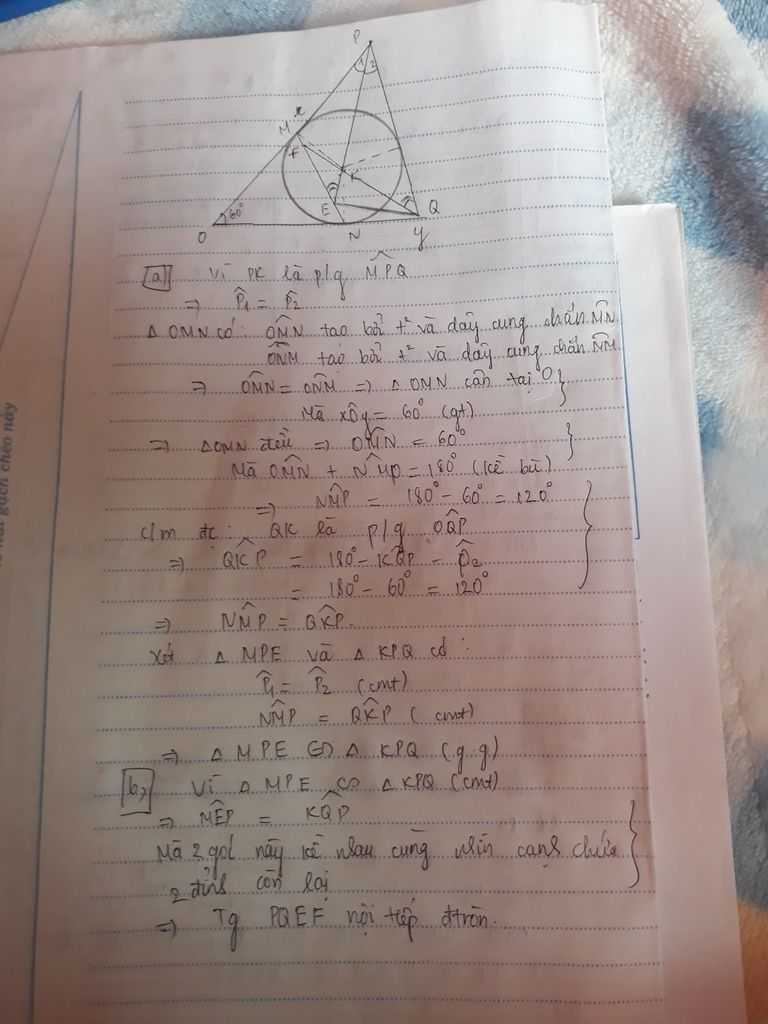 P
1 2
M x
F
K
E
60°
Q
O
N
y
a) Vì PK là p/g MP̂Q
=> P̂1 = P̂2
Δ OMN có: OM̂N tạo bởi t² và dây cung chắn MN
ON̂M tạo bởi t² và dây cung chắn NM
=> OM̂N = ON̂M => Δ OMN cân tại O }
Mà xÔy = 60° (gt)
=> ΔOMN đều => OM̂N = 60° }
Mà OM̂N + NM̂P = 180° (kề bù)
=> NM̂P = 180° - 60° = 120°
c/m đc: QK là p/g OQ̂P
=> QK̂P = 180° - KQ̂P - P̂2
= 180° - 60° = 120°
=> NM̂P = QK̂P.
Xét Δ MPE và Δ KPQ có:
P̂1 = P̂2 (cmt)
NM̂P = QK̂P (cmt)
=> Δ MPE ∽ Δ KPQ (g.g)
b, Vì Δ MPE ∽ Δ KPQ (cmt)
=> MÊP = KQ̂P
Mà 2 góc này kề nhau cùng nhìn cạnh chứa
2 đỉnh còn lại
=> Tg PQEF nội tiếp đtròn.
chéo này